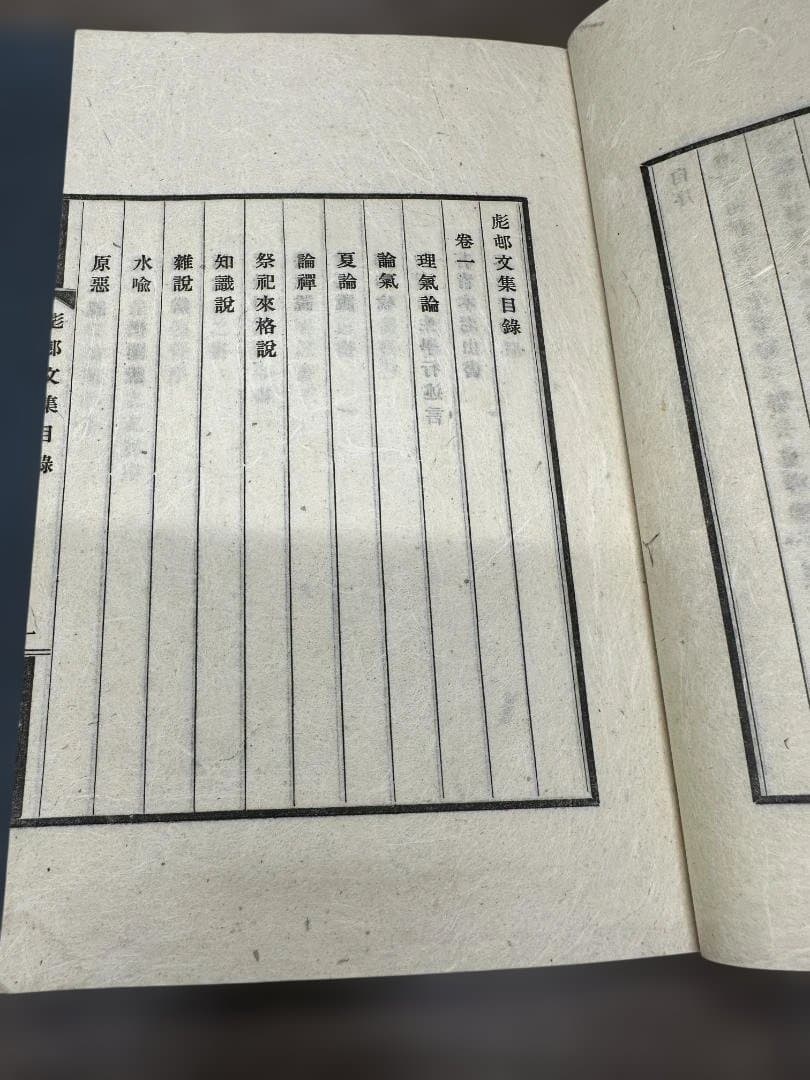 彪邨文集目錄
卷一
理氣論
論氣
夏論
論禪
祭祀來格說
知識說
雜說
水喩
原惡
彪邨文集目錄
一
自序